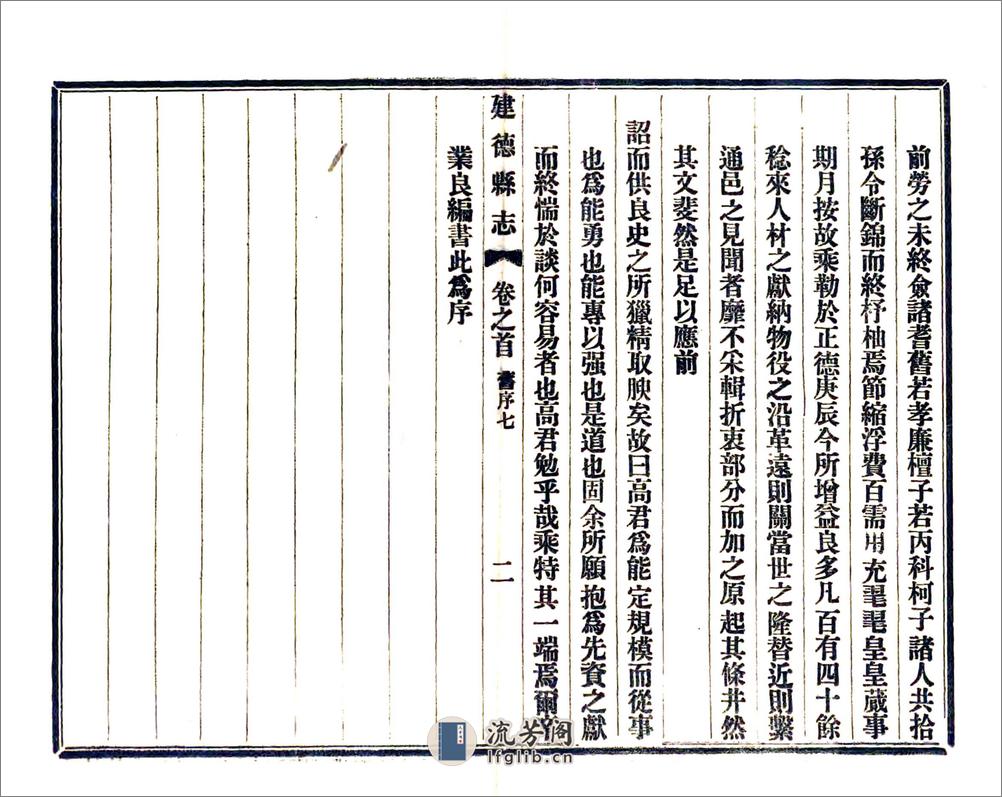 前勞之未終僉諸耆舊若孝廉檀子若丙科柯子諸人共拾
孫令斷錦而終杼柚焉節縮浮費百需用充亹亹皇皇蕆事
期月按故乘勒於正德庚辰今所增益良多凡百有四十餘
稔來人材之獻納物役之沿革遠則關當世之隆替近則繫
通邑之見聞者靡不采輯折衷部分而加之原起其條井然
其文斐然是足以應前
詔而供良史之所獵精取腴矣故曰高君爲能定規模而從事
也爲能勇也能專以强也是道也固余所願抱爲先資之獻
而終惴於談何容易者也高君勉乎哉乘特其一端焉爾
建德縣志 卷之首 舊序七 二
業良編書此爲序
流芳阁
lfglib.cn